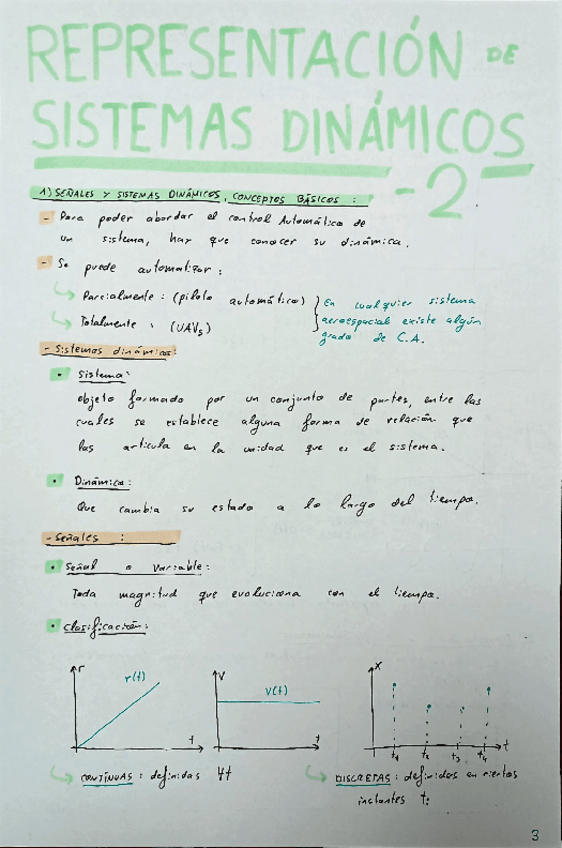 REPRESENTACIÓN DE
SISTEMAS DINÁMICOS
-2
1) SEÑALES Y SISTEMAS DINÁMICOS, CONCEPTOS BÁSICOS :
- Para poder abordar el control Automático de
un sistema, hay que conocer su dinámica.
- Se puede automatizar :
Parcialmente : (piloto automático)
Totalmente : (UAVs)
En cualquier sistema
aeroespacial existe algún
grado de C.A.
- Sistemas dinámicos:
• Sistema:
objeto formado por un conjunto de partes, entre las
cuales se establece alguna forma de relación que
las articula en la unidad que es el sistema.
• Dinámica:
Que cambia su estado a lo largo del tiempo.
- Señales :
• Señal o Variable:
Toda magnitud que evoluciona con el tiempo.
• Clasificación:
r r(t) t
V V(t) t
X t1 t2 t3 t4 t
CONTÍNUAS : definidas ∀t
DISCRETAS : definidas en ciertos
instantes ti
3